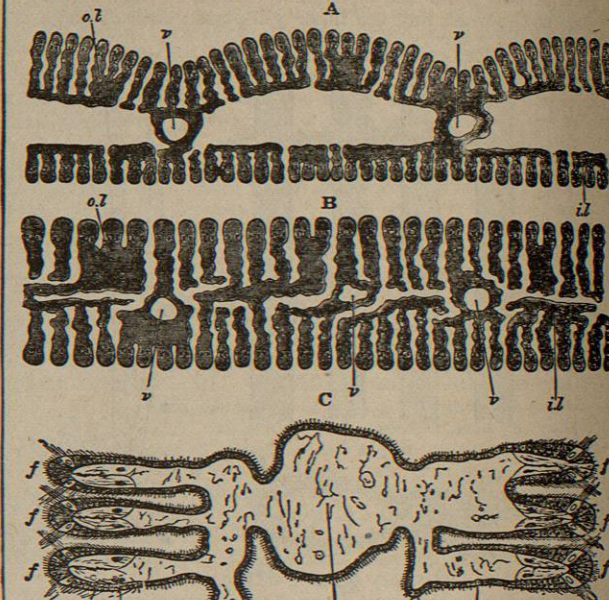 A
o.l v v
i.l
B
o.l
v v v i.l
C
f f
f f
f f